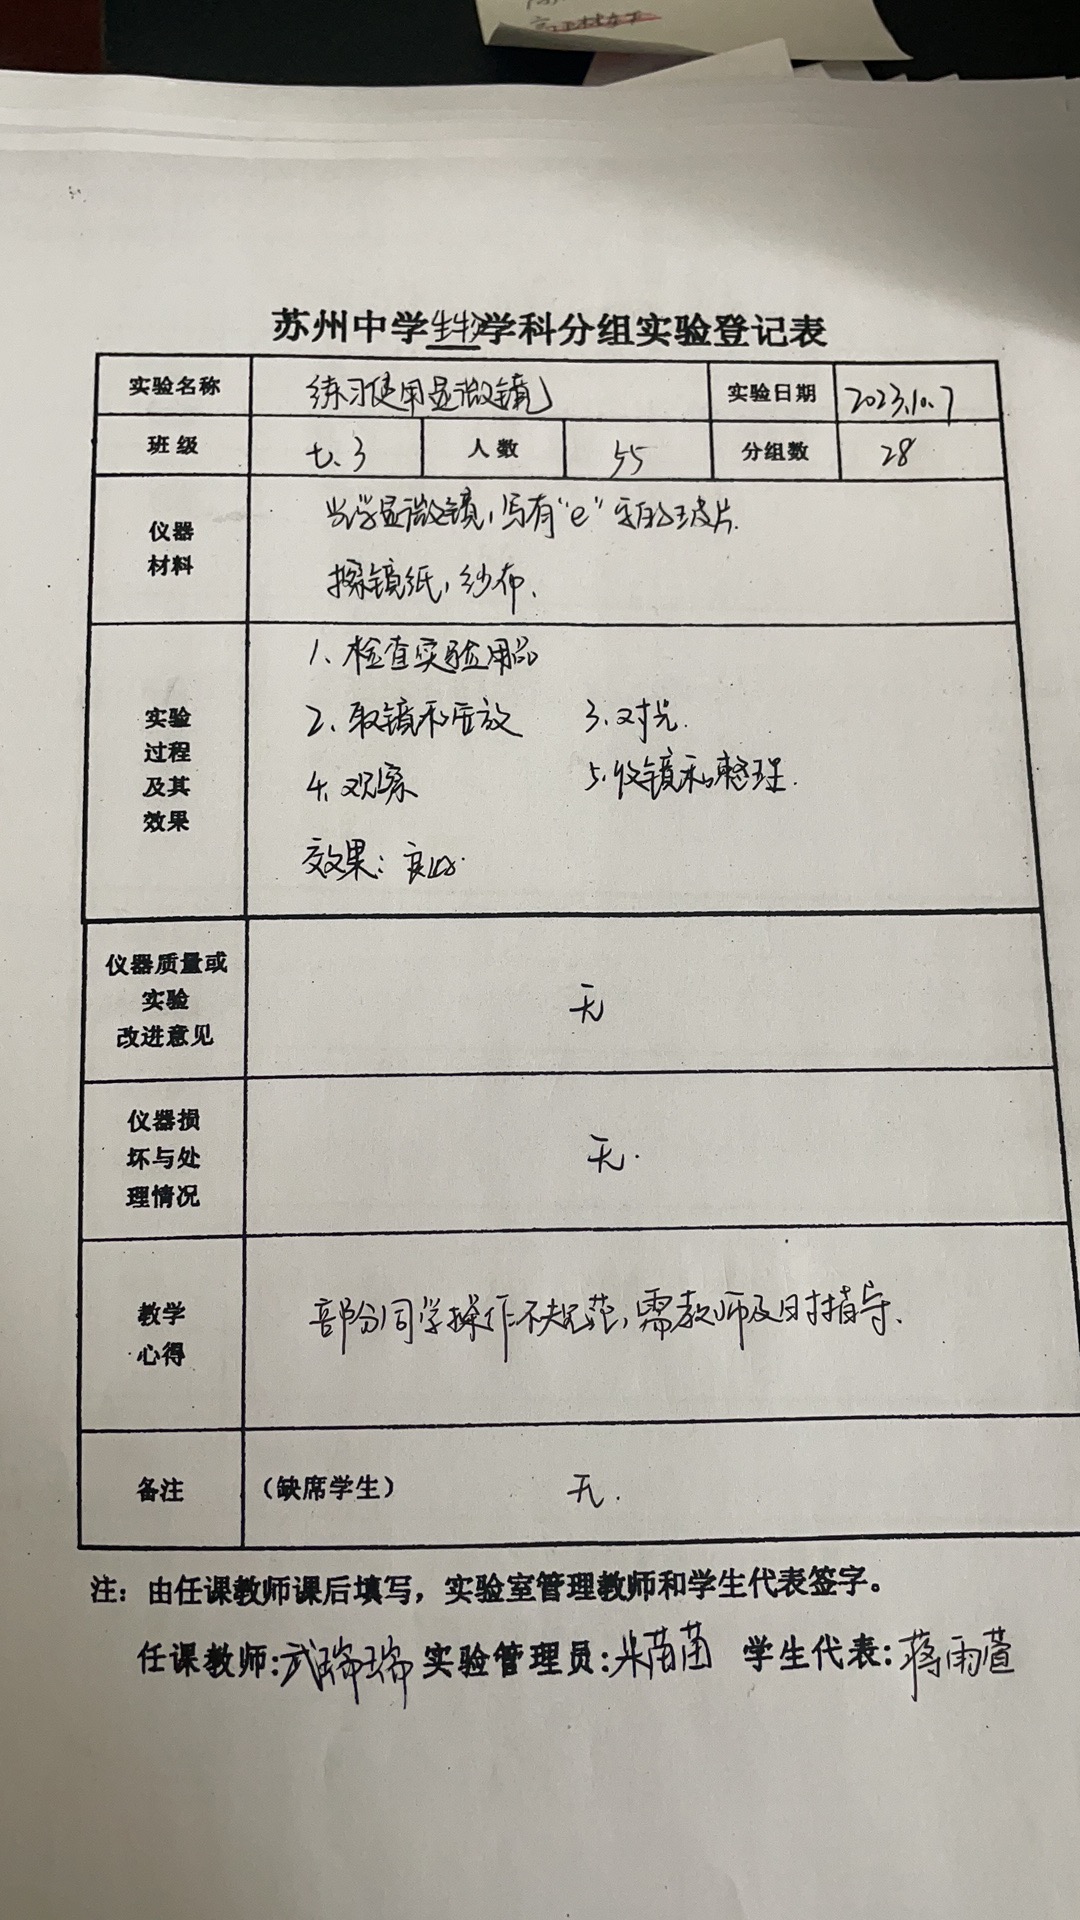 苏州中学生物学科分组实验登记表
实验名称 练习使用显微镜 实验日期 2023.10.7
班级 七、3 人数 55 分组数 28
仪器
材料
光学显微镜,写有“e”字的玻片.
擦镜纸,纱布.
实验
过程
及其
效果
1、检查实验用品
2、取镜和安放 3、对光.
4、观察 5、收镜和整理.
效果:良好.
仪器质量或
实验
改进意见
无
仪器损
坏与处
理情况
无.
教学
心得
部分同学操作不规范,需教师及时指导.
备注 (缺席学生) 无.
注:由任课教师课后填写,实验室管理教师和学生代表签字。
任课教师:武瑞瑞 实验管理员:朱苗苗 学生代表:蒋雨萱